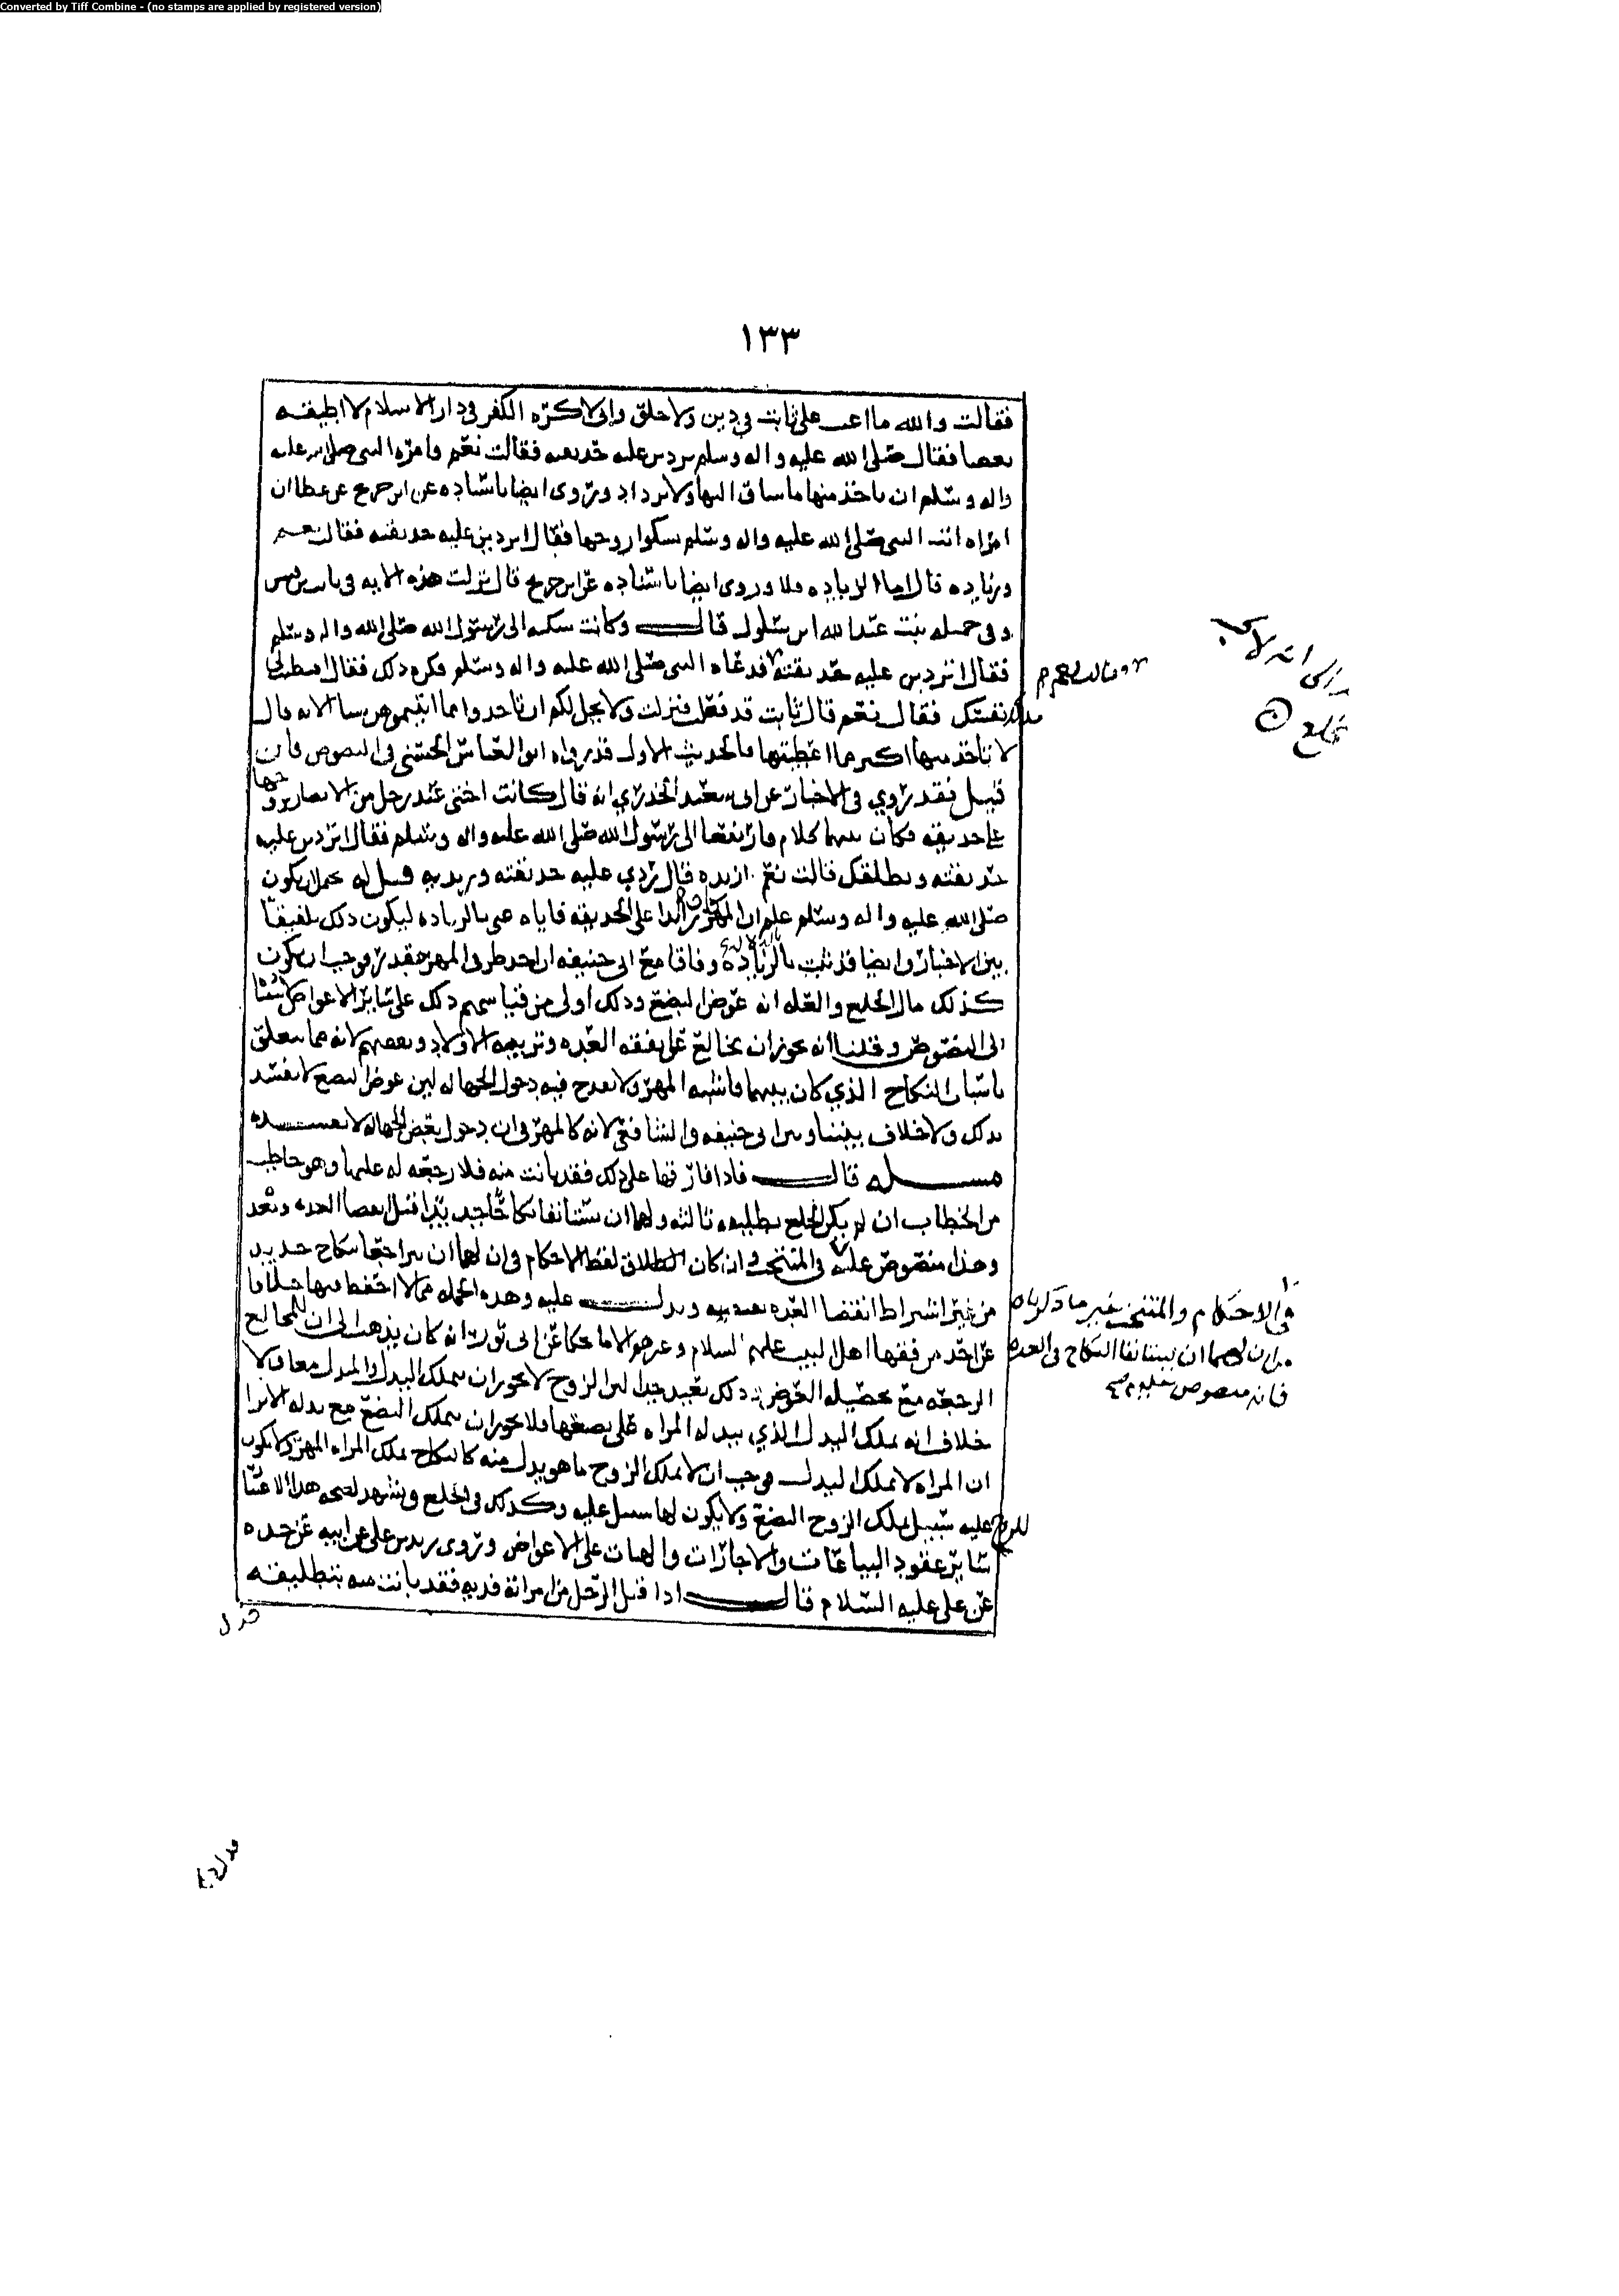 Converted by Tiff Combine - (no stamps are applied by registered version)
١٣٣
فقالت والله ما اعب على ثابت في دين ولا خلق واني لاكره الكفر في دار الاسلام لا اطيقه
بعصا فقال صلى الله عليه واله وسلم بردىن عليه حديقته فقالت نعم وامره النبي صلى الله عليه
واله وسلم ان ياخذ منها ما ساق اليها ولا يزداد وروى ايضا باسناده عن ابن جريج عن عطا ان
امراه اتت النبي صلى الله عليه واله وسلم تشكوا زوجها فقال اتردين عليه حديقته فقالت نعم
وزياده قال اما الزياده فلا وروى ايضا باسناده عن ابن جريج قال نزلت هذه الايه في ثابت بن قيس
وفي جميله بنت عبد الله ابن سلول قال وكانت شكته الى رسول الله صلى الله واله وسلم
فقال اتردين عليه حديقته فدعاه النبي صلى الله عليه واله وسلم فكره ذلك فقال
نفسك فقال نعم قال ثابت قد فعلت فنزلت ولا يحل لكم ان تاخذوا مما اتيتموهن شيا الايه قال
لا تاخذ منها اكثر مما اعطيتها والحديث الاول قد رواه ابو العباس الحسني في النصوص فان
قيل فقد روي في الاخبار عن ابي سعيد الخدري انه قال كانت اختي عند رجل من الانصار تزوجها
على حديقه فكان بينهما كلام فارتفعا الى رسول الله صلى الله عليه واله وسلم فقال اتردين عليه
حديقته ويطلقك قالت نعم ازيده قال ردي عليه حديقته وزيديه قيل له يحمل ان يكون
صلى الله عليه واله وسلم علم ان المهر كان زايدا على الحديقه فاياه عنى بالزياده ليكون ذلك تلفيقا
بين الاخبار وايضا قد ثبت بالزياده وفاقا مع ابي حنيفه ان احد طرفي المهر مقدر فوجب ان يكون
كذلك مال الخلع والعله انه عوض البضع وذلك اولى من قياسهم ذلك على سائر الاعواض
الى النصوص وقلنا انه يجوز ان يخالع على نفقه العده وتربيه الاولاد وبعضهم لانه مما يتعلق
باسباب النكاح الذي كان بينهما فاشبه المهر ولا يقدح فيه دخول الجهاله لان عوض البضع لا يفسد
بذلك ولا خلاف بيننا وبين ابي حنيفه والشافعي لانه كالمهر في ان دخول بعض الجهاله لا يفسده
مسله قال فاذا فارقها على ذلك فقد بانت منه فلا رجعه له عليها وهو خاطب
من الخطاب ان لم يكن الخلع تطليقه ثالثه ولهما ان يستانفا نكاحا جديدا قبل انقضا العده وبعد
وهذا منصوص عليه في المنتخب وان كان اطلاق لفظ الاحكام في ان لهما ان يتراجعا بنكاح جديد
من غير اشتراط انقضا العده يدل عليه وهذه الجمله مما لا احفظ فيها خلافا
عن احد من فقها اهل البيت عليهم السلام وغيرهم الا ما حكا عن ابي ثور انه كان يذهب الى ان للمخالع
الرجعه مع تحصيله العوض وذلك بعيد جدا لان الزوج لا يجوز ان يملك البدل والمبدل معا
خلاف انه يملك البدل الذي يبدله المراه على بضعها فلا يجوز ان يملك البضع مع بدله الا ترا
ان المراه لا تملك البدل فوجب ان لا يملك الزوج ما هو بدل منه كالنكاح تملك المراه المهر ولا يكون
للزوج عليه سبيل يملك الزوج البضع ولا يكون لها سبيل عليه وكذلك في الخلع ويشهد لصحه هذا الاعتبار
سائر عقود البياعات والاجارات والهبات على الاعواض وروى زيد بن علي عن ابيه عن جده
عن علي عليه السلام قال اذا قبل الرجل من امراته فديه فقد بانت منه بتطليقه
في الاحكام والمنتخب بغير ما ذكرناه
من ان لهما ان يستانفا النكاح في العده
فانه منصوص عليه